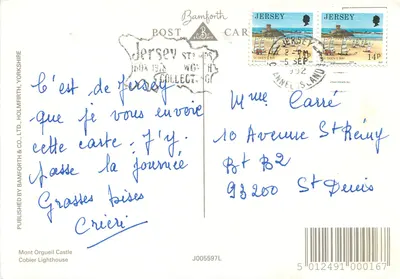 Bamforth
POST CARD
JERSEY JERSEY
14p
JERSEY
2 - PM
5 SEP
1992
CHANNEL ISLANDS
Jersey
COLLECTING
C'est de Jersey
que je vous envoie
cette carte. J'y
passe la journée
Grosses bises
Cricri
Mme Carré
10 Avenue St Rémy
Bt B2
93200 St Denis
PUBLISHED BY BAMFORTH & CO., LTD., HOLMFIRTH, YORKSHIRE
Mont Orgueil Castle
Cobier Lighthouse
J005597L
5 012491 000167